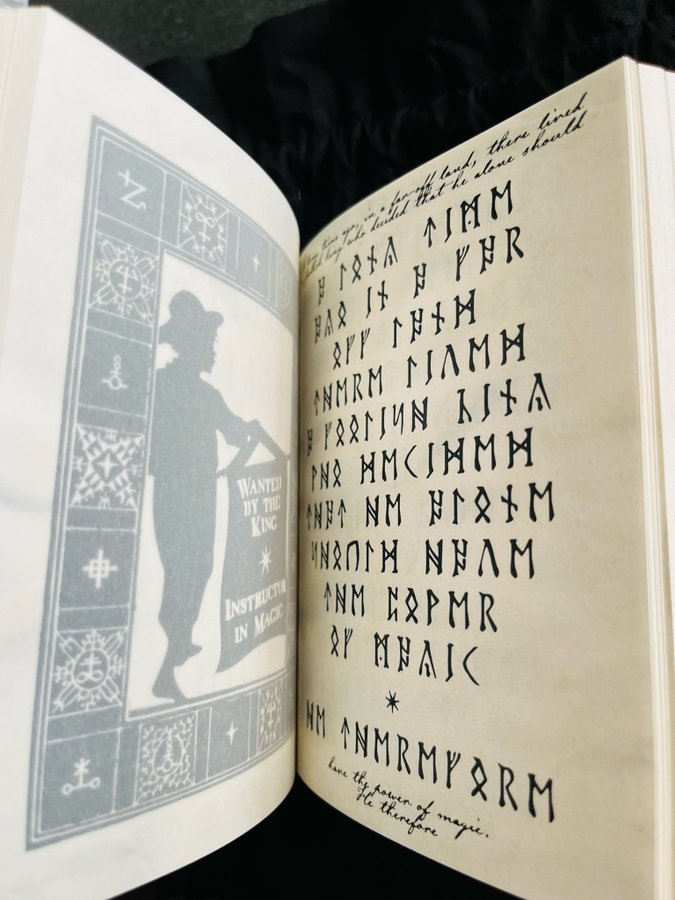 Wanted
by the
King
Instructor
in Magic
long time ago, in a far-off land, there lived
foolish king who decided that he alone should
ᚨ ᛚᛟᚾᚷ ᛏᛁᛗᛖ
ᚨᚷᛟ ᛁᚾ ᚨ ᚠᚨᚱ
ᛟᚠᚠ ᛚᚨᚾᛞ
ᛏᚺᛖᚱᛖ ᛚᛁᚢᛖᛞ
ᚨ ᚠᛟᛟᛚᛁᛋᚺ ᚲᛁᚾᚷ
ᚹᚺᛟ ᛞᛖᚲᛁᛞᛖᛞ
ᛏᚺᚨᛏ ᚺᛖ ᚨᛚᛟᚾᛖ
ᛋᚺᛟᚢᛚᛞ ᚺᚨᚢᛖ
ᛏᚺᛖ ᛈᛟᚹᛖᚱ
ᛟᚠ ᛗᚨᚷᛁᚲ
ᚺᛖ ᛏᚺᛖᚱᛖᚠᛟᚱᛖ
have the power of magic.
He therefore